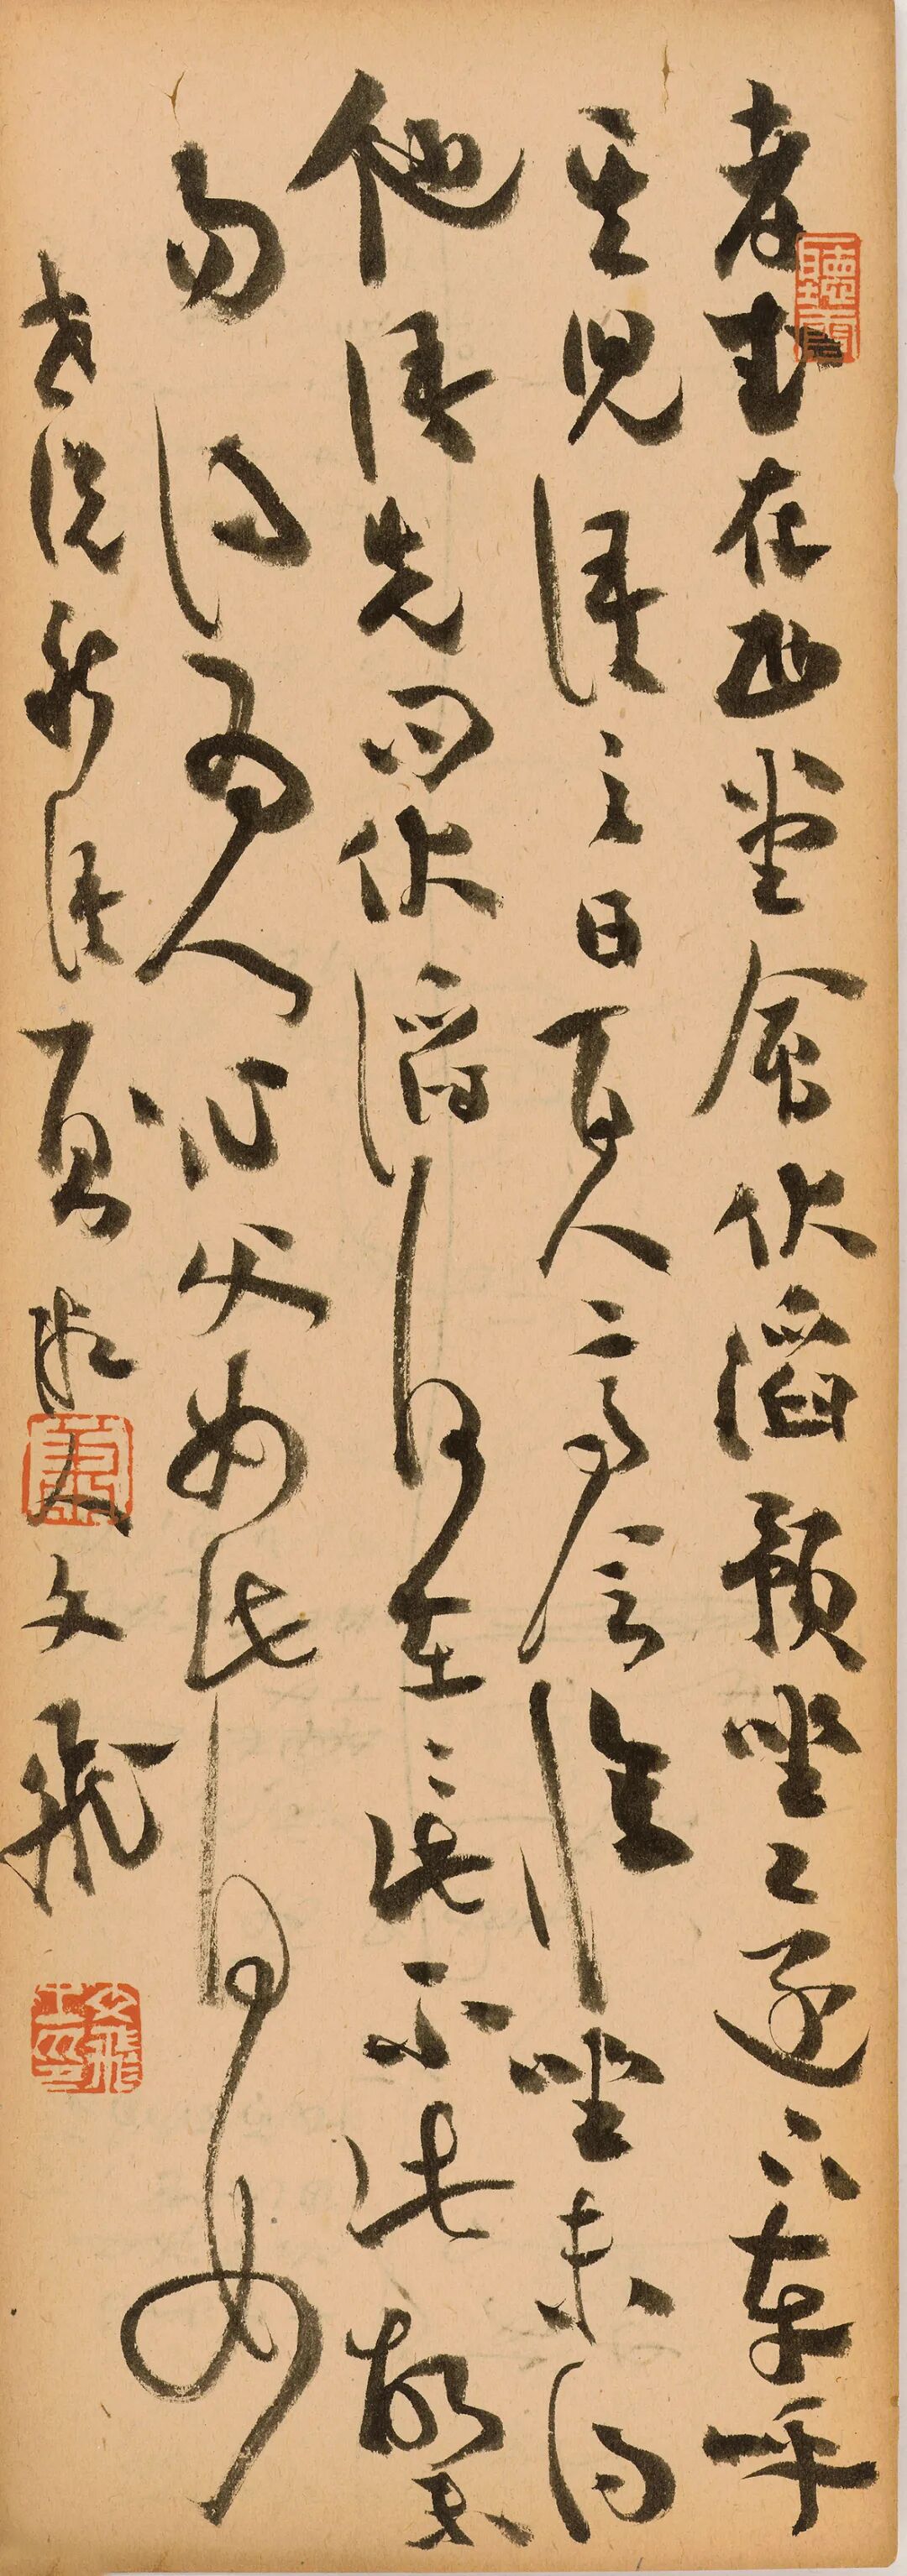 孝武在西堂會伏滔預坐々還下車呼
其兒語之曰百人高會臨坐未得
他語先問伏滔何在々此不此故未
易得為人作父如此何如
世説新語 人文飛
聽雨
蕭